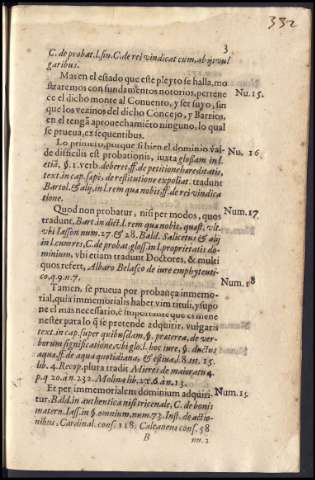 332
3
C. de probat. l. fin. C. de rei vindicat. cum alijs vulgaribus.
Mas en el estado que este pleyto se halla, mostraremos con fundamentos notorios, pertenece el dicho monte al Conuento, y ser suyo, sin que los vezinos del dicho Concejo, y Barrios, en el tengã aprouechamiẽto ninguno, lo qual se prueua, ex sequentibus.
Nu. 15.
Lo primero, porque si bien el dominio valde difficilis est probationis, iuxta glossam in l. etiã, §. 1. verb. deberet. ff. de petitione hæreditatis, text. in cap. sæpe, de restitutione expoliat. tradunt Bartol. & alij, in l. rem qua nobis. ff. de rei vindicatione.
Nu. 16.
Quod non probatur, nisi per modos, quos tradunt, Bart. in dict. l. rem qua nobis, quæst. vlt. vbi Iasson num. 27. & 28. Bald. Salicetus & alij in l. cum res, C. de probat. gloss. in l. proprietatis dominium, vbi etiam tradunt Doctores, & multi quos refert, Albaro Belasco de iure emphyteutico, q. 9. n. 7.
Num. 17.
Tamen, se prueua por probança inmemorial, quia immemorialis habet vim tituli, y supone el mas necessario, è importante que es menester para lo q̃ se pretende adquirir. vulgaris text. in cap. super quibusdam, §. præterea, de verborum significatione, vbi glo. l. hoc iure, §. ductus aquæ. ff. de aqua quotidiana, & estiua, l. 8. tit. 15. lib. 4. Recop. plura tradit Mieres de maioratu 4. p. q. 20. à n. 232. Molina lib. 2. c. 6. à n. 13.
Num. 18
Et per immemorialem dominium adquiritur. Bald. in authentica nisi tricenale, C. de bonis matern. Iass. in §. omnium, num. 73. Inst. de actionibus. Cardinal. cons. 128. Calcaneus cons. 58
Num. 15
B
nu. 2